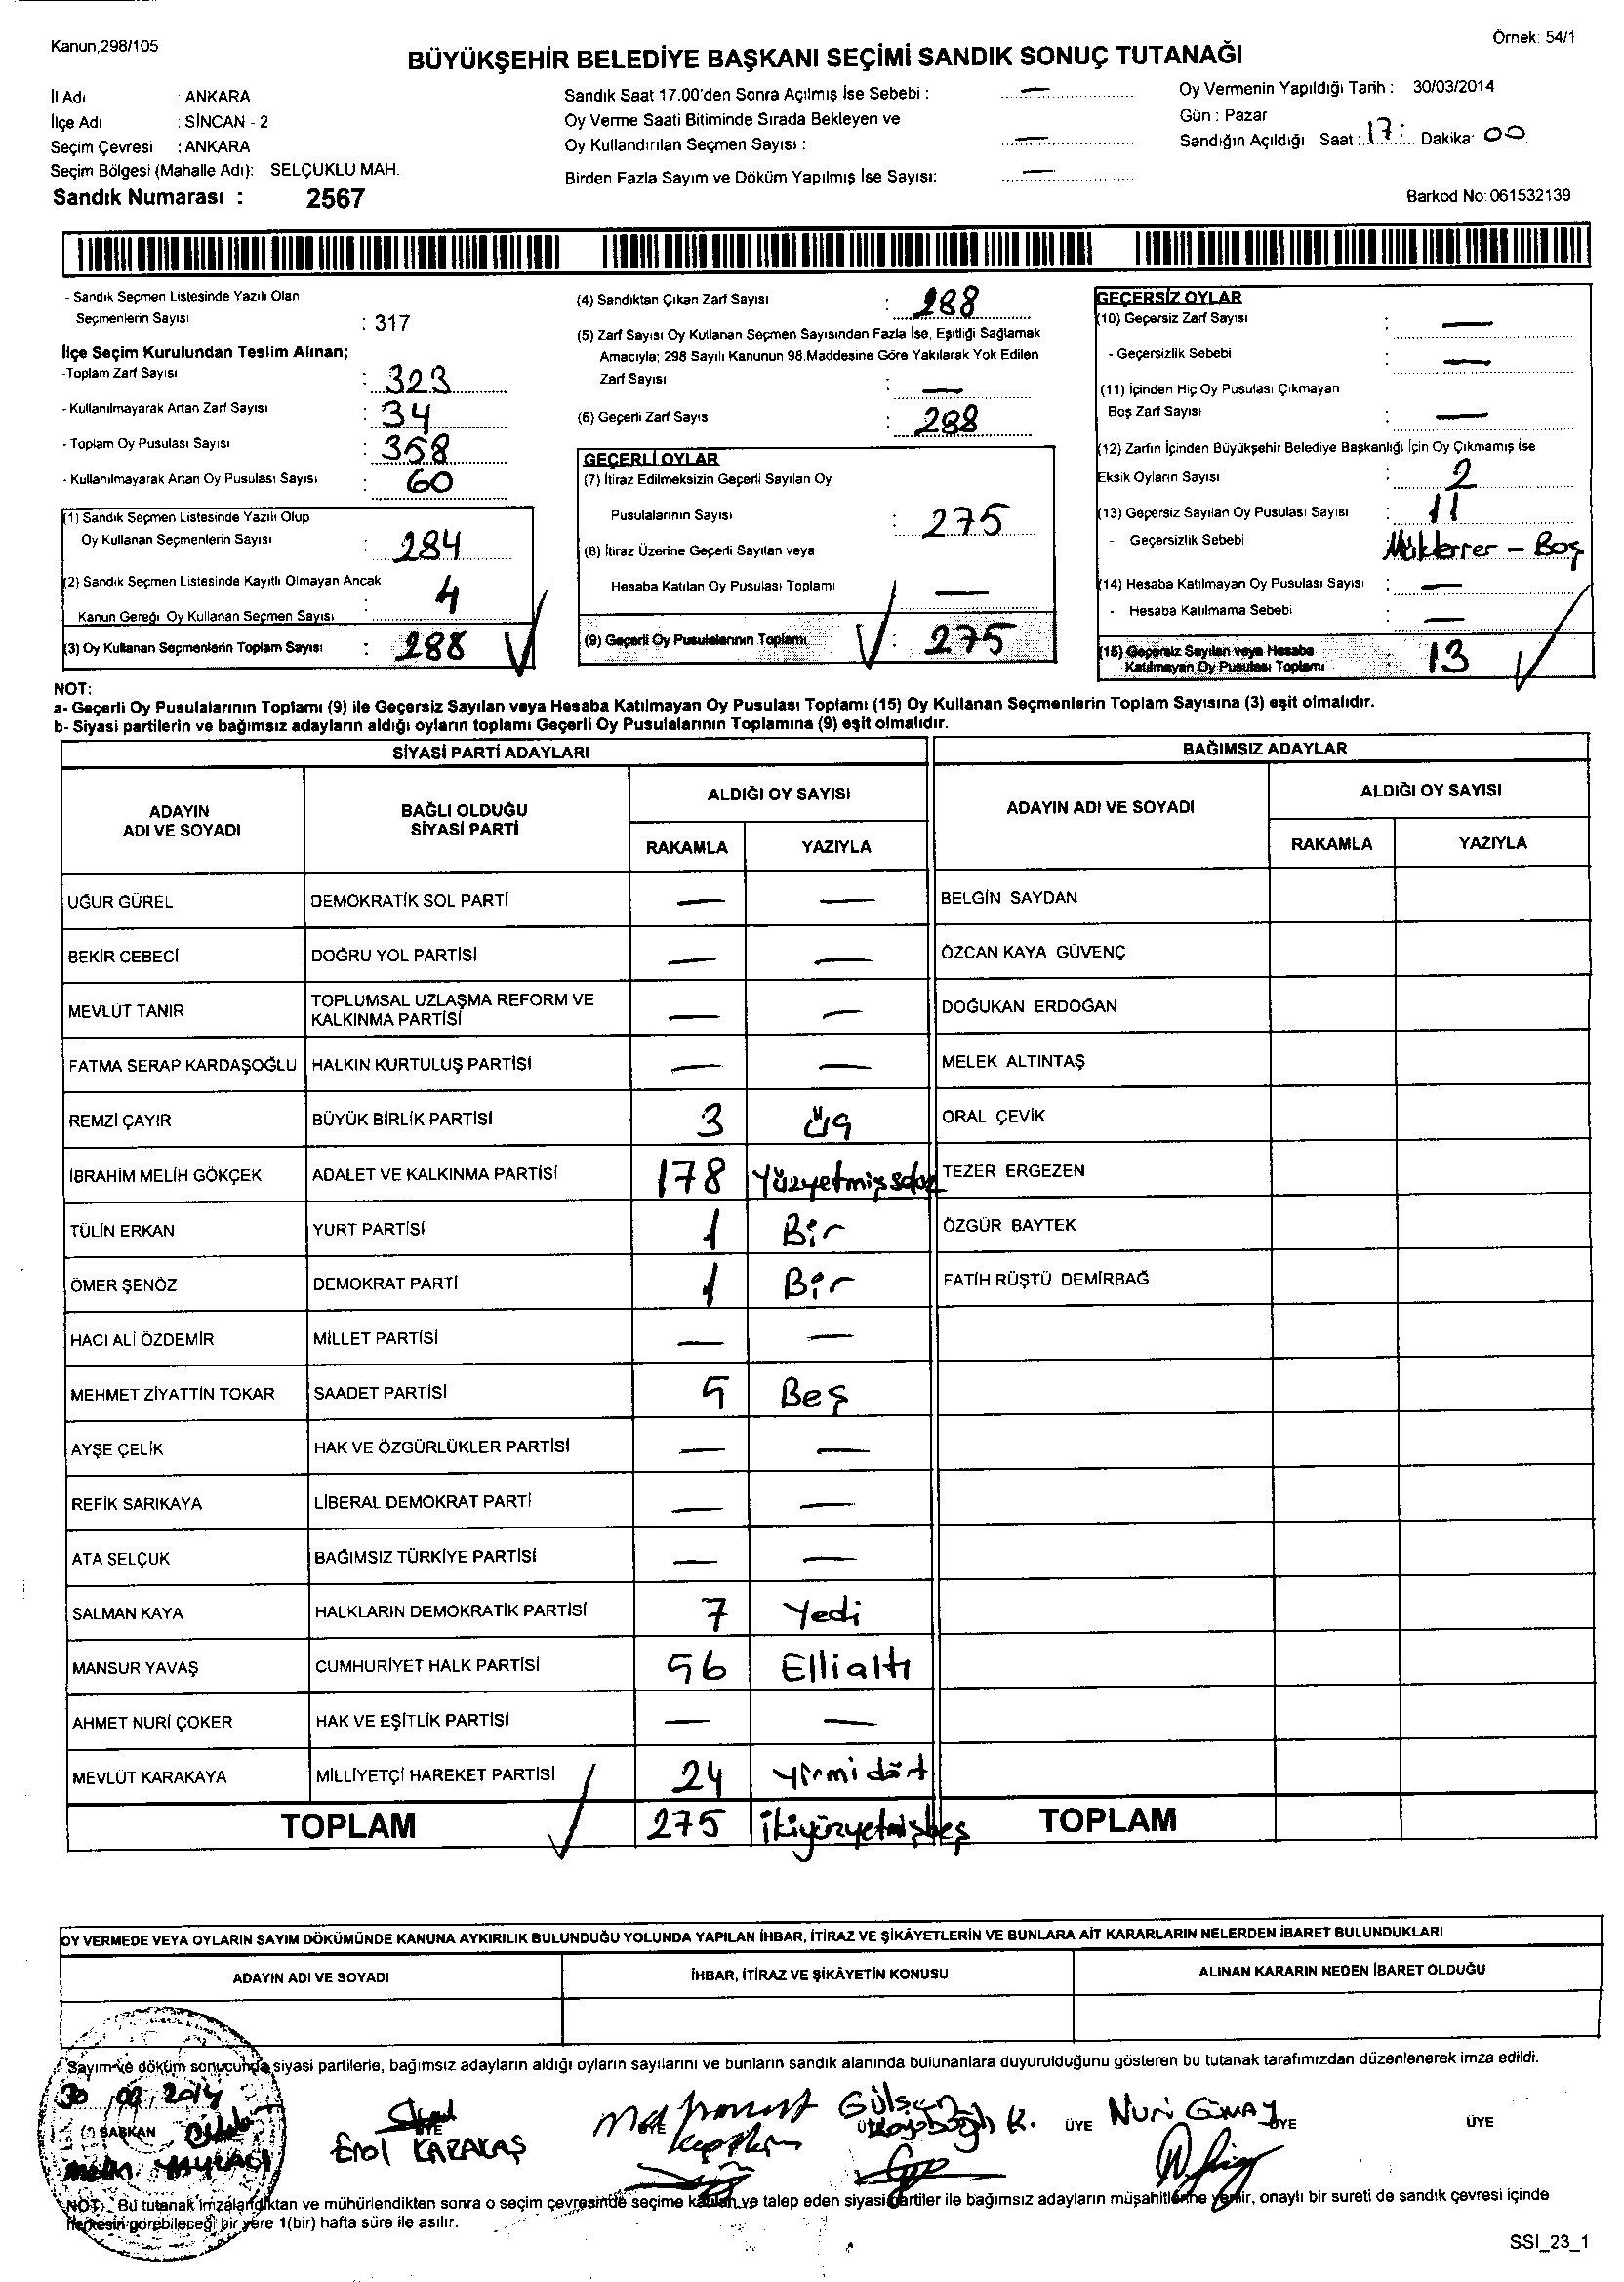 Kanun,298/105
Örnek: 54/1
BÜYÜKŞEHİR BELEDİYE BAŞKANI SEÇİMİ SANDIK SONUÇ TUTANAĞI
İl Adı : ANKARA
İlçe Adı : SİNCAN - 2
Seçim Çevresi : ANKARA
Seçim Bölgesi (Mahalle Adı): SELÇUKLU MAH.
Sandık Numarası : 2567
Sandık Saat 17.00'den Sonra Açılmış İse Sebebi : —
Oy Verme Saati Bitiminde Sırada Bekleyen ve
Oy Kullandırılan Seçmen Sayısı : —
Birden Fazla Sayım ve Döküm Yapılmış İse Sayısı: —
Oy Vermenin Yapıldığı Tarih : 30/03/2014
Gün : Pazar
Sandığın Açıldığı Saat : 17: Dakika: 00
Barkod No: 061532139
- Sandık Seçmen Listesinde Yazılı Olan
Seçmenlerin Sayısı : 317
İlçe Seçim Kurulundan Teslim Alınan;
-Toplam Zarf Sayısı : 323
- Kullanılmayarak Artan Zarf Sayısı : 34
- Toplam Oy Pusulası Sayısı : 358
- Kullanılmayarak Artan Oy Pusulası Sayısı : 60
(1) Sandık Seçmen Listesinde Yazılı Olup
Oy Kullanan Seçmenlerin Sayısı : 284
(2) Sandık Seçmen Listesinde Kayıtlı Olmayan Ancak
Kanun Gereği Oy Kullanan Seçmen Sayısı : 4
(3) Oy Kullanan Seçmenlerin Toplam Sayısı : 288
(4) Sandıktan Çıkan Zarf Sayısı : 288
(5) Zarf Sayısı Oy Kullanan Seçmen Sayısından Fazla İse, Eşitliği Sağlamak
Amacıyla; 298 Sayılı Kanunun 98.Maddesine Göre Yakılarak Yok Edilen
Zarf Sayısı : —
(6) Geçerli Zarf Sayısı : 288
GEÇERLİ OYLAR
(7) İtiraz Edilmeksizin Geçerli Sayılan Oy
Pusulalarının Sayısı : 275
(8) İtiraz Üzerine Geçerli Sayılan veya
Hesaba Katılan Oy Pusulası Toplamı —
(9) Geçerli Oy Pusulalarının Toplamı : 275
GEÇERSİZ OYLAR
(10) Geçersiz Zarf Sayısı : —
- Geçersizlik Sebebi : —
(11) İçinden Hiç Oy Pusulası Çıkmayan
Boş Zarf Sayısı : —
(12) Zarfın İçinden Büyükşehir Belediye Başkanlığı İçin Oy Çıkmamış ise
Eksik Oyların Sayısı : 2
(13) Geçersiz Sayılan Oy Pusulası Sayısı : 11
- Geçersizlik Sebebi Mükerrer - Boş
(14) Hesaba Katılmayan Oy Pusulası Sayısı : —
- Hesaba Katılmama Sebebi : —
(15) Geçersiz Sayılan veya Hesaba
Katılmayan Oy Pusulası Toplamı 13
NOT:
a- Geçerli Oy Pusulalarının Toplamı (9) ile Geçersiz Sayılan veya Hesaba Katılmayan Oy Pusulası Toplamı (15) Oy Kullanan Seçmenlerin Toplam Sayısına (3) eşit olmalıdır.
b- Siyasi partilerin ve bağımsız adayların aldığı oyların toplamı Geçerli Oy Pusulalarının Toplamına (9) eşit olmalıdır.
SİYASİ PARTİ ADAYLARI
ADAYIN ADI VE SOYADI BAĞLI OLDUĞU SİYASİ PARTİ ALDIĞI OY SAYISI
RAKAMLA YAZIYLA
UĞUR GÜREL DEMOKRATİK SOL PARTİ — —
BEKİR CEBECİ DOĞRU YOL PARTİSİ — —
MEVLÜT TANIR TOPLUMSAL UZLAŞMA REFORM VE KALKINMA PARTİSİ — —
FATMA SERAP KARDAŞOĞLU HALKIN KURTULUŞ PARTİSİ — —
REMZİ ÇAYIR BÜYÜK BİRLİK PARTİSİ 3 Üç
İBRAHİM MELİH GÖKÇEK ADALET VE KALKINMA PARTİSİ 178 Yüzyetmişsekiz
TÜLİN ERKAN YURT PARTİSİ 1 Bir
ÖMER ŞENÖZ DEMOKRAT PARTİ 1 Bir
HACI ALİ ÖZDEMİR MİLLET PARTİSİ — —
MEHMET ZİYATTİN TOKAR SAADET PARTİSİ 5 Beş
AYŞE ÇELİK HAK VE ÖZGÜRLÜKLER PARTİSİ — —
REFİK SARIKAYA LİBERAL DEMOKRAT PARTİ — —
ATA SELÇUK BAĞIMSIZ TÜRKİYE PARTİSİ — —
SALMAN KAYA HALKLARIN DEMOKRATİK PARTİSİ 7 Yedi
MANSUR YAVAŞ CUMHURİYET HALK PARTİSİ 56 Ellialtı
AHMET NURİ ÇOKER HAK VE EŞİTLİK PARTİSİ — —
MEVLÜT KARAKAYA MİLLİYETÇİ HAREKET PARTİSİ 24 Yirmidört
TOPLAM 275 ikiyüzyetmişbeş
BAĞIMSIZ ADAYLAR
ADAYIN ADI VE SOYADI ALDIĞI OY SAYISI
RAKAMLA YAZIYLA
BELGİN SAYDAN
ÖZCAN KAYA GÜVENÇ
DOĞUKAN ERDOĞAN
MELEK ALTINTAŞ
ORAL ÇEVİK
TEZER ERGEZEN
ÖZGÜR BAYTEK
FATİH RÜŞTÜ DEMİRBAĞ
TOPLAM
OY VERMEDE VEYA OYLARIN SAYIM DÖKÜMÜNDE KANUNA AYKIRILIK BULUNDUĞU YOLUNDA YAPILAN İHBAR, İTİRAZ VE ŞİKÂYETLERİN VE BUNLARA AİT KARARLARIN NELERDEN İBARET BULUNDUKLARI
ADAYIN ADI VE SOYADI İHBAR, İTİRAZ VE ŞİKÂYETİN KONUSU ALINAN KARARIN NEDEN İBARET OLDUĞU
Sayım ve döküm sonucunda siyasi partilerle, bağımsız adayların aldığı oyların sayılarını ve bunların sandık alanında bulunanlara duyurulduğunu gösteren bu tutanak tarafımızdan düzenlenerek imza edildi.
30 03 2014
BAŞKAN
Erol KARAKAŞ
Gülşen K. ÜYE Nuri GÜNAY ÜYE ÜYE
NOT: Bu tutanak imzalandıktan ve mühürlendikten sonra o seçim çevresinde seçime katılan ve talep eden siyasi partiler ile bağımsız adayların müşahitlerine verilir, onaylı bir sureti de sandık çevresi içinde
herkesin görebileceği bir yere 1(bir) hafta süre ile asılır.
SSI_23_1